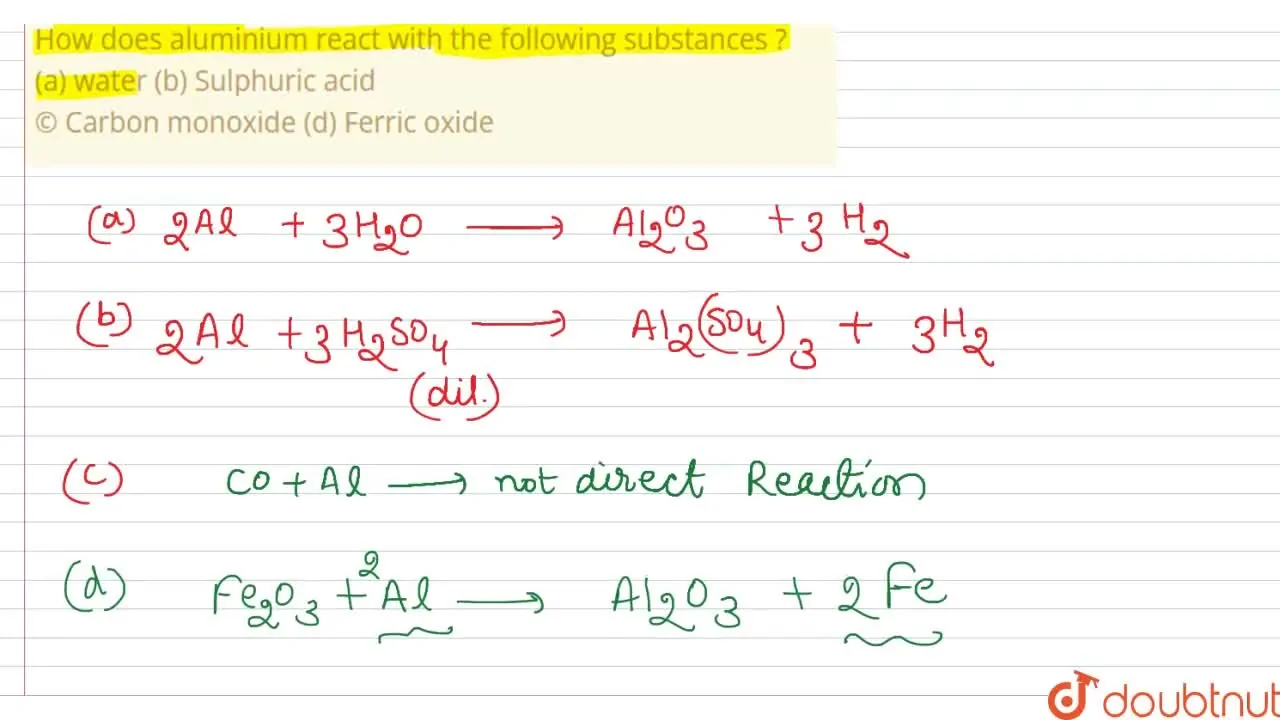 How does aluminium react with the following substances ?
(a) water (b) Sulphuric acid
© Carbon monoxide (d) Ferric oxide
(a) 2Al + 3H₂O ⟶ Al₂O₃ + 3H₂
(b) 2Al + 3H₂SO₄ ⟶ Al₂(SO₄)₃ + 3H₂
(dil.)
(c) CO + Al ⟶ not direct Reaction
(d) Fe₂O₃ + 2Al ⟶ Al₂O₃ + 2Fe
doubtnut